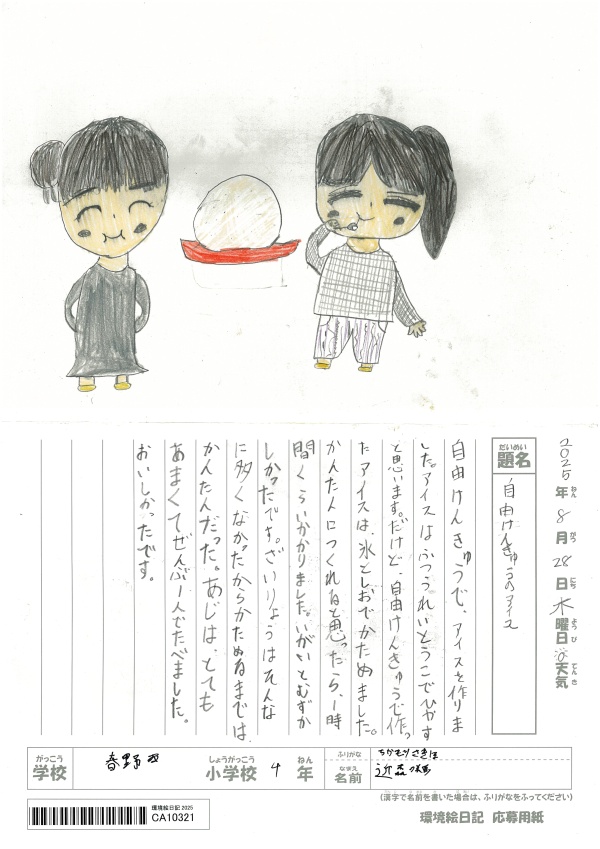 2025年8月28日木曜日 天気
ねん がつ にち よう び てん き
だいめい
題名
自由けんきゅうのアイス
自由けんきゅうで、アイスを作りま
した。アイスはふつうれいとうこでひやす
と思います。だけど、自由けんきゅうで作っ
たアイスは、氷としおでかためました。
かんたんにつくれると思ったら、1時
間くらいかかりました。いがいとむずか
しかったです。ざいりょうはそんな
に多くなかったからかためるまでは、
かんたんだった。あじは、とても
あまくてぜんぶ一人でたべました。
おいしかったです。
がっこう しょうがっこう ねん ふりがな
学校 春野西 小学校 4 年
なまえ
名前 近森
(漢字で名前を書いた場合は、ふりがなをふってください)
環境絵日記 2025
CA10321
環境絵日記 応募用紙